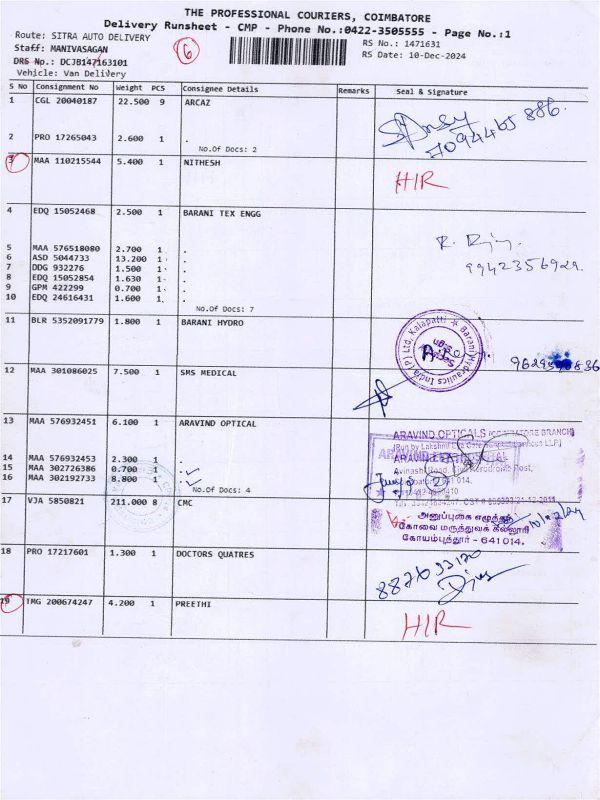 THE PROFESSIONAL COURIERS, COIMBATORE
Delivery Runsheet - CMP - Phone No.:0422-3505555 - Page No.:1
Route: SITRA AUTO DELIVERY
RS No.: 1471631
Staff: MANIVASAGAN
6
RS Date: 10-Dec-2024
DRS No.: DCJB147163101
Vehicle: Van Delivery
S No Consignment No Weight PCS Consignee Details Remarks Seal & Signature
1 CGL 20040187 22.500 9 ARCAZ
2 PRO 17265043 2.600 1 .
No.Of Docs: 2
3 MAA 110215544 5.400 1 NITHESH
HIR
4 EDQ 15052468 2.500 1 BARANI TEX ENGG
5 MAA 576518080 2.700 1 .
6 ASD 5044733 13.200 1 .
7 DDG 932276 1.500 1 .
8 EDQ 15052854 1.630 1 .
9 GPM 422299 0.700 1 .
10 EDQ 24616431 1.600 1 .
No.Of Docs: 7
11 BLR 5352091779 1.800 1 BARANI HYDRO
Barani Hydraulics India (P) Ltd, Kalapatti
12 MAA 301086025 7.500 1 SMS MEDICAL
13 MAA 576932451 6.100 1 ARAVIND OPTICAL
ARAVIND OPTICALS (COIMBATORE BRANCH)
14 MAA 576932453 2.300 1 .
15 MAA 302726386 0.700 1 .
16 MAA 302192733 8.800 1 .
No.Of Docs: 4
17 VJA 5850821 211.000 8 CMC
அனுப்புகை எழுத்தர்
கோவை மருத்துவக் கல்லூரி
கோயம்புத்தூர் - 641 014.
18 PRO 17217601 1.300 1 DOCTORS QUATRES
19 TMG 200674247 4.200 1 PREETHI
HIR